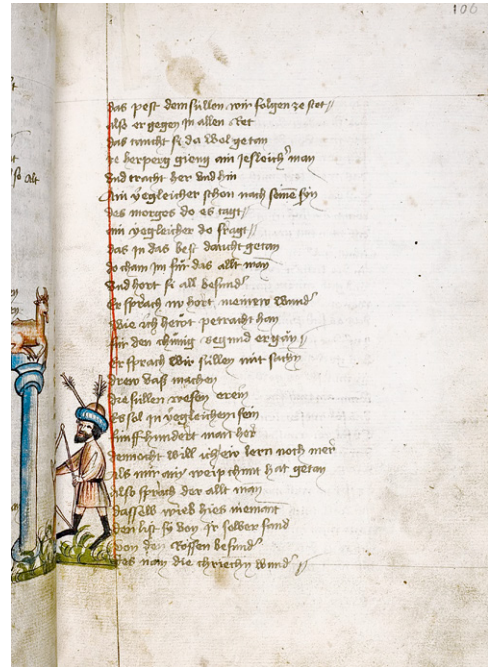 106
das pest dem süllen wir folgen ze stet
also er gegen in allen Ret
das taucht si da wol getan
ze herperg gieng ain jesleich man
vnd tracht her vnd hin
Ain yegleicher schon nach seinē syn
des morges do es tagt
ain yegleicher do fragt
das in das best daucht getan
do cham Jm für das allt man
vnd hort si all besund
Er sprach nv hort meinew wund
wie ich hewt petracht han
mir den chunig
Er sprach wir süllen mit sachn
drew vass machen
die süllen wesen erein
Es sol in yegleichem sein
fünff hundert man her
dennocht will ich ew lern noch mer
als mir ain weip chunt hat getan
also sprach der allt man
dasselb wieb hies niemant
den list sy von Jr selber fand
von den Rossen besund
des nam die chriechn wund
so alt